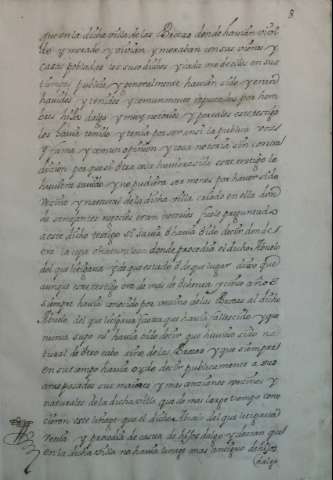 8
que en la dicha villa de las Brozas donde havian vivi
do y morado y vivian y moraban con sus vienes y
casas pobladas los susodichos y cada uno de ellos en sus
tiempos publica y generalmente havian sido y eran
havidos y tenidos y comunmente reputados por hom
bres hijos dalgo y muy notorios y por tales este testigo
los havia tenido y tenia por ser ansi la publica voz
y fama y comun opinion y cosa notoria sin contra
dicion porque si otra cosa huviera sido este testigo lo
huviera savido y no pudiera ser menos por haver sido
vecino y natural de la dicha villa criado en ella don
de semejantes negocios eran notorios fuele preguntado
a este dicho testigo si savia o havia oido decir
donde procedia el dicho Abuelo
del que litigava y de que estado o de que lugar dixo que
aunque este testigo era de mas de ochenta y cinco años
siempre havia conocido por vecino de las Brozas al dicho
Abuelo del que litigava hasta que havia fallecido y que
nunca supo ni havia oido decir que huviese sido na
tural de otro cabo sino de las Brozas y que siempre
en su tiempo havia oydo decir publicamente a sus
ante pasados sus maiores y mas ancianos vecinos y
naturales de la dicha villa que de mas largo tiempo cono
cieron este linage que el dicho Abuelo del que litigava
venia y procedia de casta de hijos dalgo y decian que
en la dicha villa no havia linage mas antiguo de hijos
dalgo